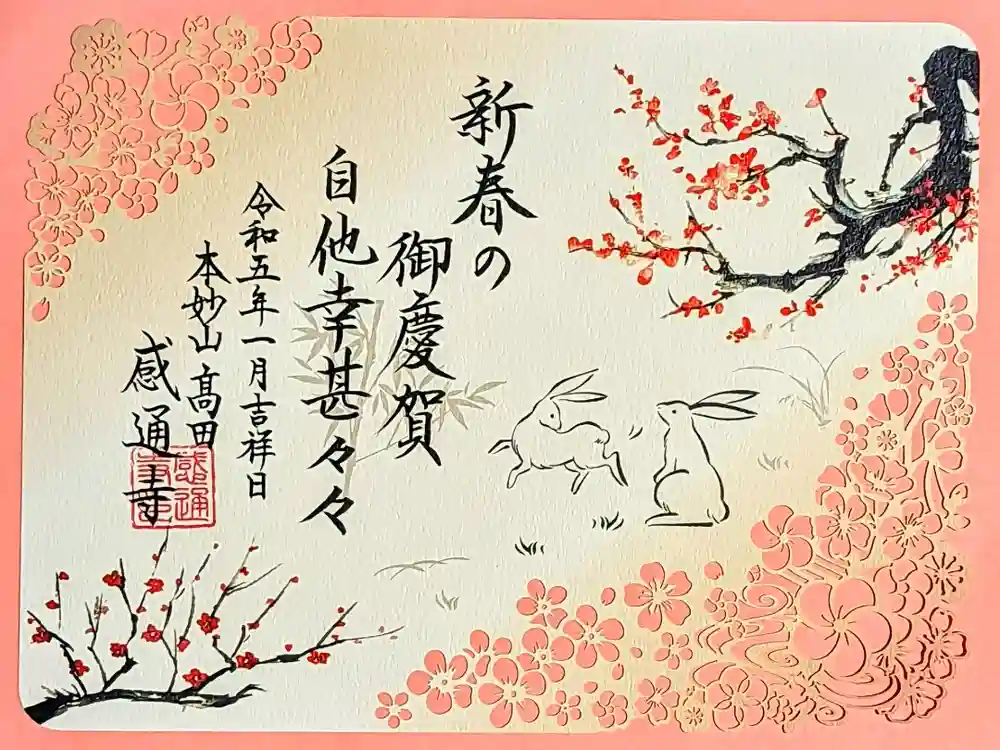 新春の
御慶賀
自他幸甚々々
令和五年一月吉祥日
本妙山髙田
感通寺
感通寺印